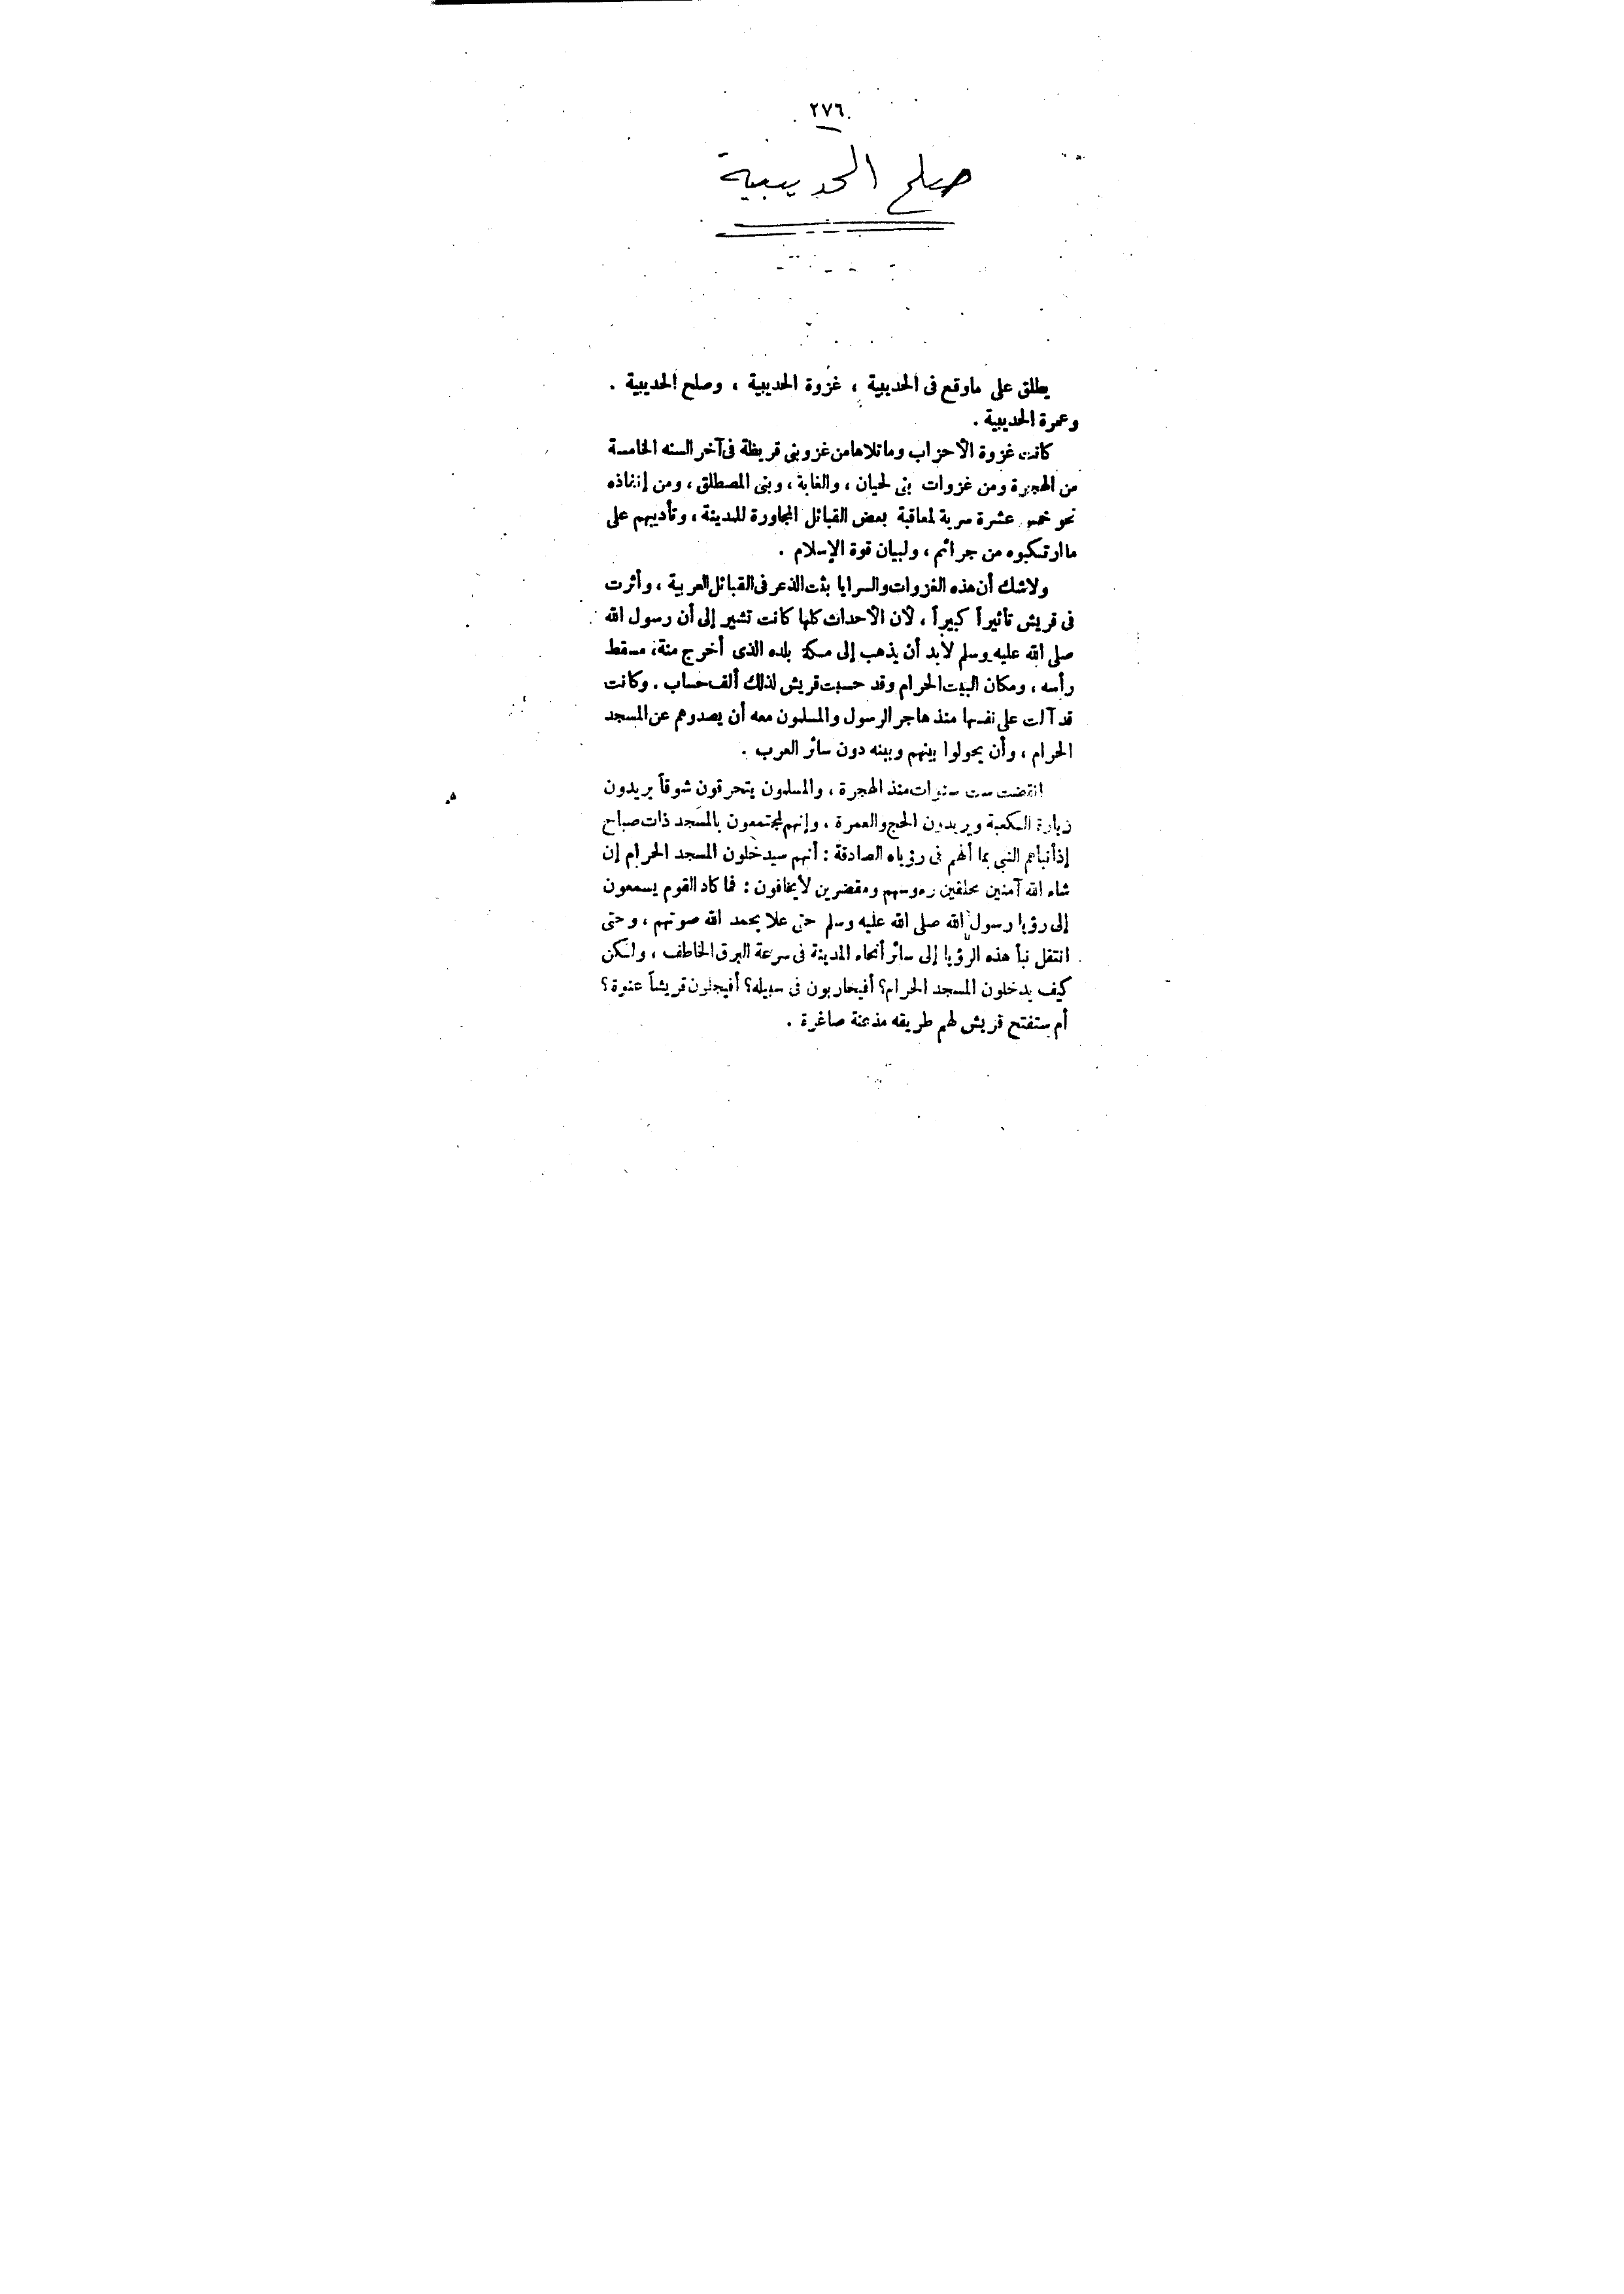 ٢٧٦
صلح الحديبية
يطلق على ماوقع فى الحديبية ، غزوة الحديبية ، وصلح الحديبية .
وعمرة الحديبية .
كانت غزوة الأحزاب وماتلاها من غزو بنى قريظة فى آخر السنه الخامسة
من الهجرة ومن غزوات بنى لحيان ، والغابة ، وبنى المصطلق ، ومن إنفاذه
نحو خمس عشرة سرية لمعاقبة بعض القبائل المجاورة للمدينة ، وتأديبهم على
ما ارتكبوه من جرائم ، ولبيان قوة الإسلام .
ولاشك أن هذه الغزوات والسرايا بثت الذعر فى القبائل العربية ، وأثرت
فى قريش تأثيراً كبيراً ، لأن الأحداث كلها كانت تشير إلى أن رسول الله
صلى الله عليه وسلم لابد أن يذهب إلى مكة بلده الذى أخرج منة ، مسقط
رأسه ، ومكان البيت الحرام وقد حسبت قريش لذلك ألف حساب . وكانت
قد آلت على نفسها منذ هاجر الرسول والمسلمون معه أن يصدوهم عن المسجد
الحرام ، وأن يحولوا بينهم وبينه دون سائر العرب .
انقضت ست سنوات منذ الهجرة ، والمسلمون يتحرقون شوقاً يريدون
زيارة الكعبة ويريدون الحج والعمرة ، وإنهم لمجتمعون بالمسجد ذات صباح
إذ أنبأهم النبى بما ألهم فى رؤياه الصادقة : أنهم سيدخلون المسجد الحرام إن
شاء الله آمنين محلقين رءوسهم ومقصرين لايخافون : فما كاد القوم يسمعون
إلى رؤيا رسول الله صلى الله عليه وسلم حتى علا بحمد الله صوتهم ، وحتى
انتقل نبأ هذه الرؤيا إلى سائر أنحاء المدينة فى سرعة البرق الخاطف ، ولكن
كيف يدخلون المسجد الحرام؟ أفيحاربون فى سبيله؟ أفيجلون قريشاً عنوة ؟
أم ستفتح قريش لهم طريقه مذعنة صاغرة .